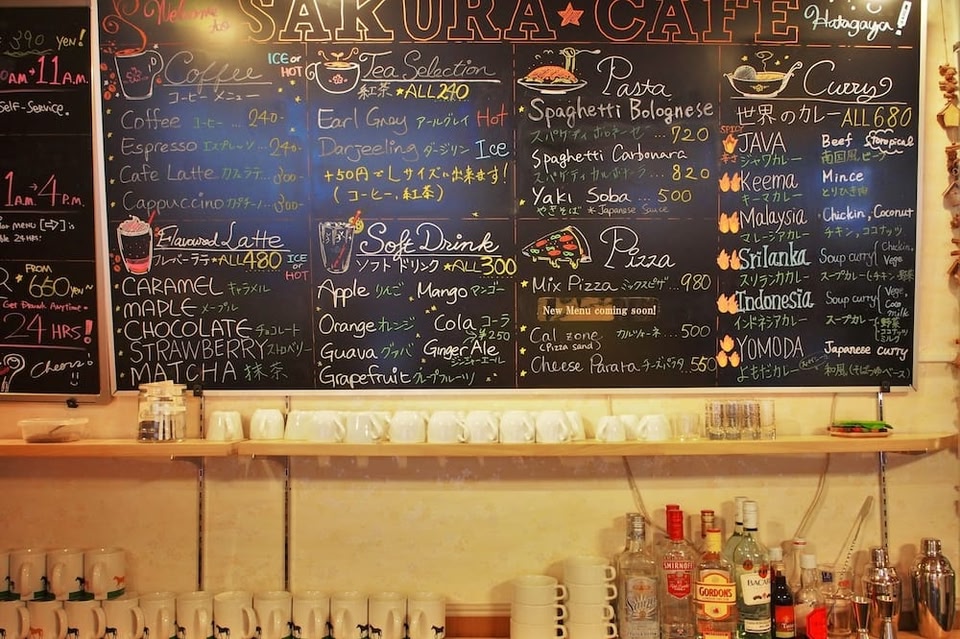 Welcome to
SAKURA★CAFE
Hatagaya!
390 yen!
AM→11A.M.
Self-Service.
→4 P.M.
FROM
650 yen~
24 HRS!
Cheers!
Coffee
ICE or HOT
コーヒーメニュー
Coffee コーヒー ... 240-
Espresso エスプレッソ ... 240-
Cafe Latte カフェラテ...
Cappuccino カプチーノ...
Flavoured Latte
フレーバーラテ ★ALL480
ICE or HOT
CARAMEL キャラメル
MAPLE メープル
CHOCOLATE チョコレート
STRAWBERRY ストロベリー
MATCHA 抹茶
Tea Selection
紅茶 ★ALL240
Earl Gray アールグレイ Hot
Darjeeling ダージリン Ice
+50円でLサイズに出来ます!
(コーヒー, 紅茶)
Soft Drink
ソフトドリンク ★ALL300
Apple りんご Mango マンゴー
Orange オレンジ Cola コーラ
250
Guava グァバ Ginger Ale
ジンジャーエール
Grapefruit グレープフルーツ
Pasta
Spaghetti Bolognese
スパゲティ ボロネーゼ... 720
Spaghetti Carbonara
スパゲティ カルボナーラ... 820
Yaki Soba ... 500
やきそば *Japanese Sauce
Pizza
Mix Pizza ミックスピザ... 980
New Menu coming soon!
Cal zone カルツォーネ... 500
(Pizza sand)
Cheese Parata チーズパラタ 550
Curry
世界のカレー ALL680
SPICY
JAVA Beef Tropical
ジャワカレー 南国風ビーフ
Keema Mince
キーマカレー とりひき肉
Malaysia Chickin, Coconut
マレーシアカレー チキン, ココナッツ
Srilanka Soup curry Chickin, Vege
スリランカカレー スープカレー チキン 野菜
Indonesia Soup curry Vege, Coco milk
インドネシアカレー スープカレー 野菜 ココナッツミルク
YOMODA Japanese curry
よもだカレー 和風(そばつゆベース)
SMIRNOFF
GORDON'S
BACAR